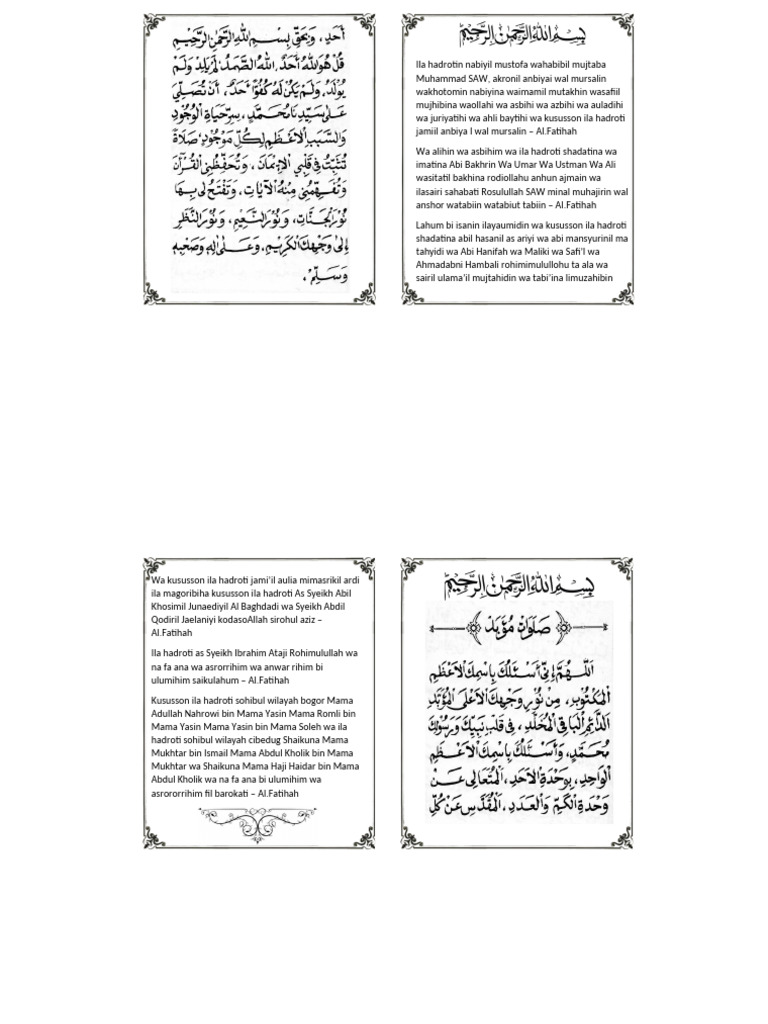 أَحَدٍ، وَبِحَقِّ بِسْمِ اللهِ الرَّحْمٰنِ الرَّحِيْمِ
قُلْ هُوَ اللهُ أَحَدٌ. اَللهُ الصَّمَدُ. لَمْ يَلِدْ وَلَمْ
يُوْلَدْ. وَلَمْ يَكُنْ لَهُ كُفُوًا أَحَدٌ. أَنْ تُصَلِّيَ
عَلَى سَيِّدِنَا مُحَمَّدٍ، سِرِّ حَيَاةِ الْوُجُوْدِ
وَالسَّبَبِ الْأَعْظَمِ لِكُلِّ مَوْجُوْدٍ، صَلَاةً
تُثَبِّتُ فِي قَلْبِي الْإِيْمَانَ، وَتُحَفِّظُنِي الْقُرْآنَ
وَتُفَهِّمُنِي مِنْهُ الْآيَاتِ، وَتَفْتَحُ لِي بِهَا
نُوْرَ الْجَنَّاتِ، وَنُوْرَ النَّعِيْمِ، وَنُوْرَ النَّظَرِ
إِلَى وَجْهِكَ الْكَرِيْمِ، وَعَلَى اٰلِهِ وَصَحْبِهِ
وَسَلِّمْ.
بِسْمِ اللهِ الرَّحْمٰنِ الرَّحِيْمِ
Ila hadrotin nabiyil mustofa wahabibil mujtaba
Muhammad SAW, akronil anbiyai wal mursalin
wakhotomin nabiyina waimamil mutakhin wasafiil
mujhibina waollahi wa asbihi wa azbihi wa auladihi
wa juriyatihi wa ahli baytihi wa kususson ila hadroti
jamiil anbiya I wal mursalin – Al.Fatihah
Wa alihin wa asbihim wa ila hadroti shadatina wa
imatina Abi Bakhrin Wa Umar Wa Ustman Wa Ali
wasitatil bakhina rodiollahu anhun ajmain wa
ilasairi sahabati Rosulullah SAW minal muhajirin wal
anshor watabiin watabiut tabiin – Al.Fatihah
Lahum bi isanin ilayaumidin wa kususson ila hadroti
shadatina abil hasanil as ariyi wa abi mansyurinil ma
tahyidi wa Abi Hanifah wa Maliki wa Safi'I wa
Ahmadabni Hambali rohimimulullohu ta ala wa
sairil ulama'il mujtahidin wa tabi'ina limuzahibin
Wa kususson ila hadroti jami'il aulia mimasrikil ardi
ila magoribiha kususson ila hadroti As Syeikh Abil
Khosimil Junaediyil Al Baghdadi wa Syeikh Abdil
Qodiril Jaelaniyi kodasoAllah sirohul aziz –
Al.Fatihah
Ila hadroti as Syeikh Ibrahim Ataji Rohimulullah wa
na fa ana wa asrorrihim wa anwar rihim bi
ulumihim saikulahum – Al.Fatihah
Kususson ila hadroti sohibul wilayah bogor Mama
Adullah Nahrowi bin Mama Yasin Mama Romli bin
Mama Yasin Mama Yasin bin Mama Soleh wa ila
hadroti sohibul wilayah cibedug Shaikuna Mama
Mukhtar bin Ismail Mama Abdul Kholik bin Mama
Mukhtar wa Shaikuna Mama Haji Haidar bin Mama
Abdul Kholik wa na fa ana bi ulumihim wa
asrororrihim fil barokati – Al.Fatihah
بِسْمِ اللهِ الرَّحْمٰنِ الرَّحِيْمِ
صَلَوَاتْ مُؤَيَّدْ
اَللّٰهُمَّ إِنِّيْ أَسْئَلُكَ بِاسْمِكَ الْأَعْظَمِ
الْمَكْتُوْبِ، مِنْ نُوْرِ وَجْهِكَ الْأَعْلَى الْمُؤَبَّدِ
الدَّائِمِ الْبَاقِي الْمُخَلَّدِ، فِي قَلْبِ نَبِيِّكَ وَرَسُوْلِكَ
مُحَمَّدٍ، وَأَسْئَلُكَ بِاسْمِكَ الْأَعْظَمِ
الْوَاحِدِ، بِوَحْدَةِ الْأَحَدِ، اَلْمُتَعَالِى عَنْ
وَحْدَةِ الْكَمِّ وَالْعَدَدِ، اَلْمُقَدَّسِ عَنْ كُلِّ